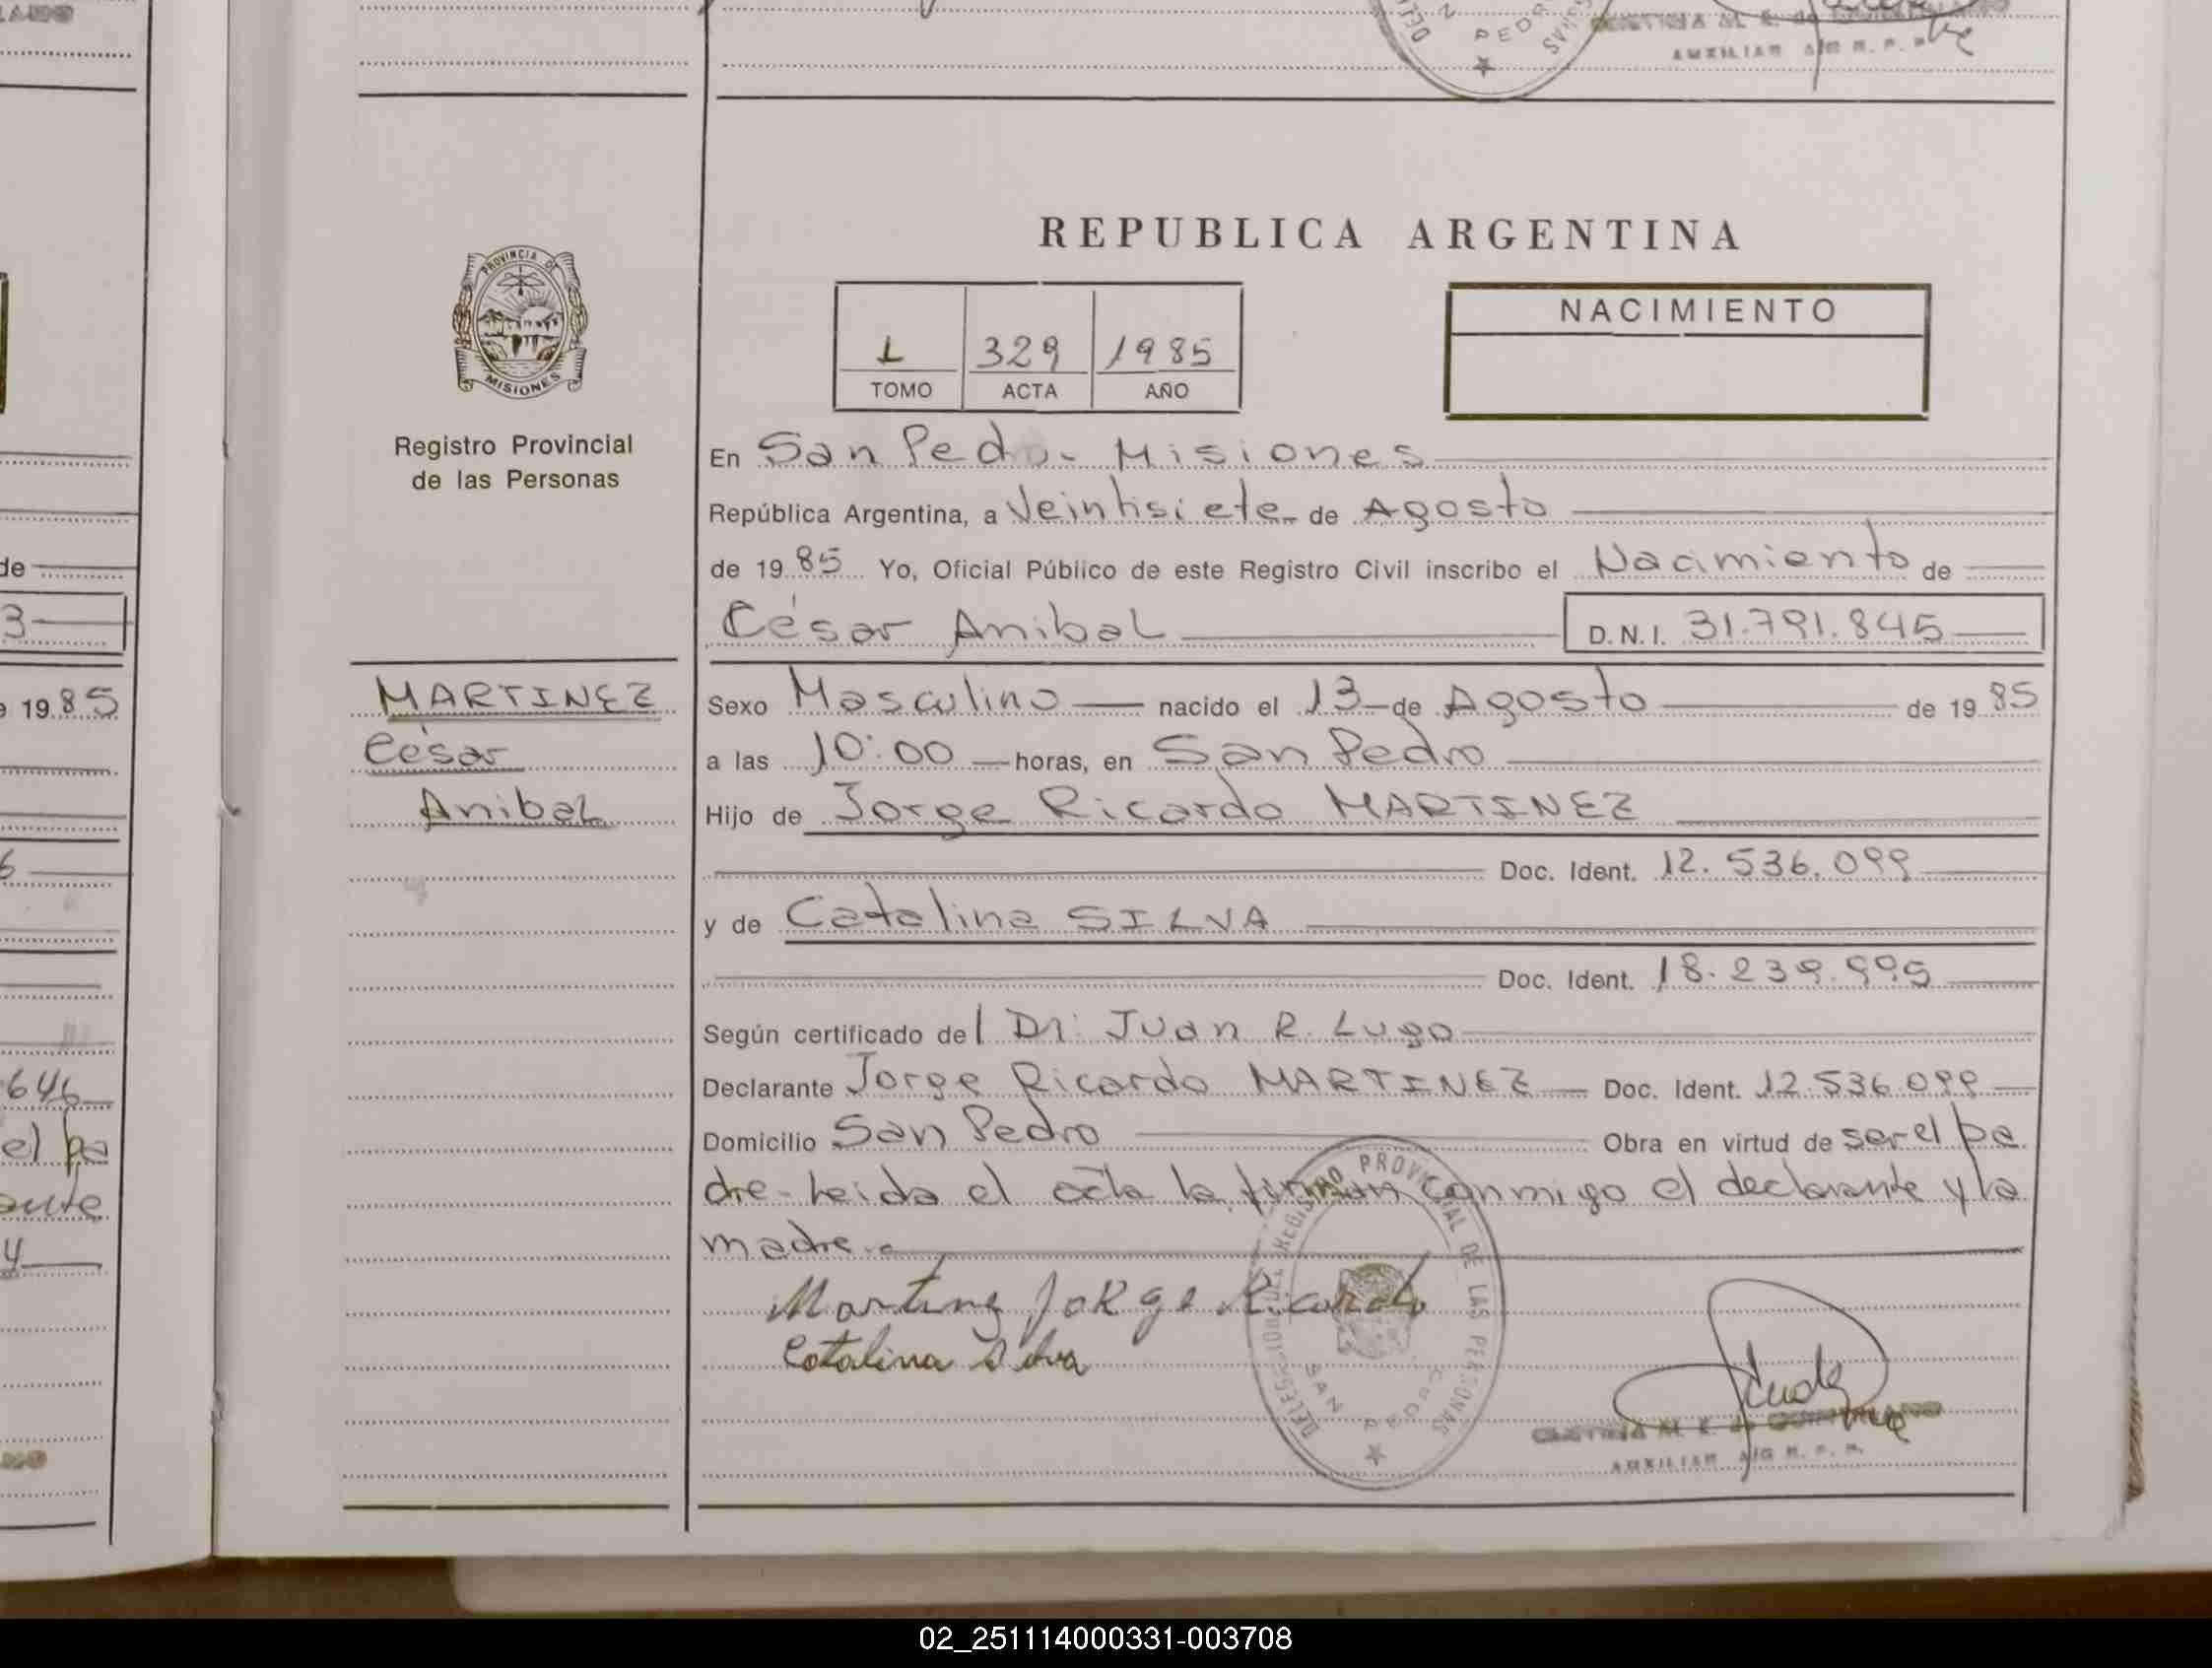 REPUBLICA ARGENTINA
PROVINCIA DE
MISIONES
Registro Provincial
de las Personas
1 329 1985
TOMO ACTA AÑO
NACIMIENTO
En San Pedro - Misiones
República Argentina, a Veintisiete de Agosto
de 1985 Yo, Oficial Público de este Registro Civil inscribo el Nacimiento de
César Anibal D.N.I. 31.791.845
MARTINEZ
César
Anibal
Sexo Masculino nacido el 13 de Agosto de 1985
a las 10:00 horas, en San Pedro
Hijo de Jorge Ricardo MARTINEZ
Doc. Ident. 12.536.099
y de Catalina SILVA
Doc. Ident. 18.239.995
Según certificado del Dr: Juan R. Lugo
Declarante Jorge Ricardo MARTINEZ Doc. Ident. 12.536.099
Domicilio San Pedro Obra en virtud de ser el pa
dre - leida el acta la firman conmigo el declarante y la
madre.
Martinez JoRge Ricardo
Catalina Silva
DELEGACION DEL REGISTRO PROVINCIAL DE LAS PERSONAS
SAN PEDRO
AUXILIAR R. P. P.
de 1985
646
el pa
02_251114000331-003708